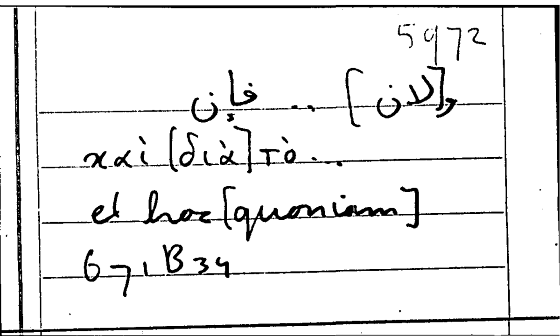 5972
و[لان] .. فإن
καὶ [διὰ] τὸ...
et hoc [quoniam]
671 B 34